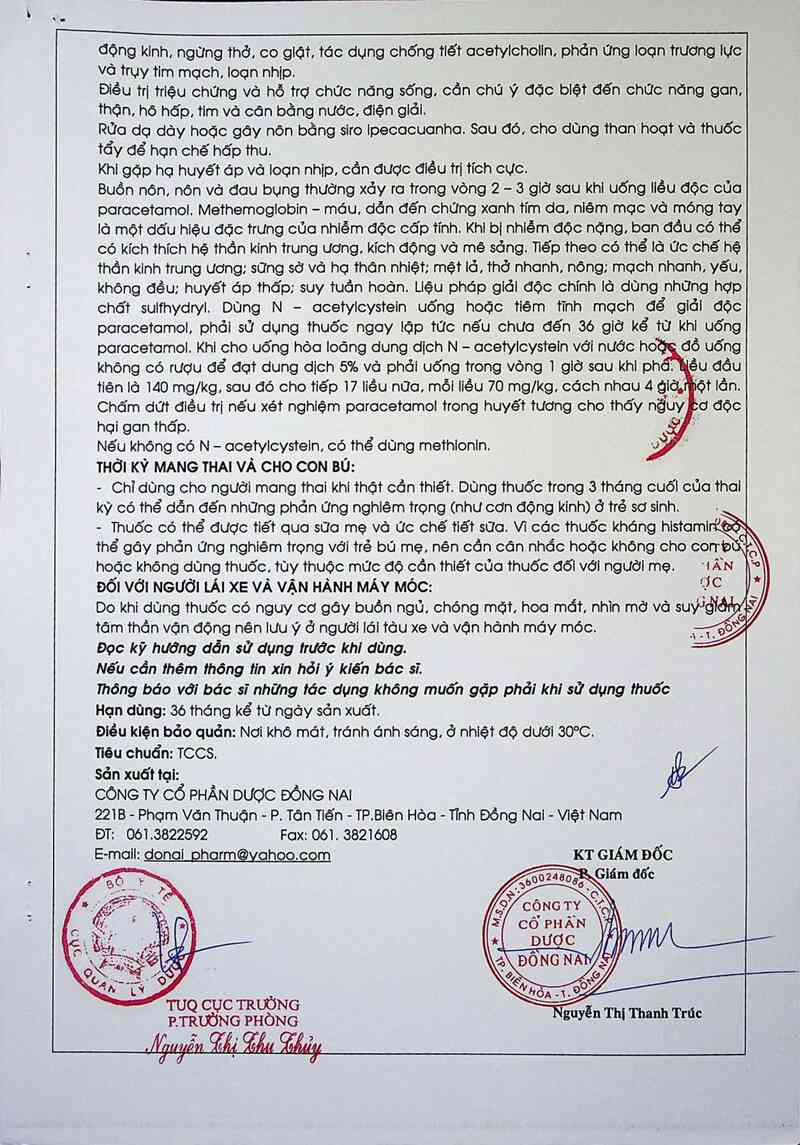 động kinh, ngừng thở, co giật, tác dụng chống tiết acetylcholin, phản ứng loạn trương lực
và trụy tim mạch, loạn nhịp.
Điều trị triệu chứng và hỗ trợ chức năng sống, cần chú ý đặc biệt đến chức năng gan,
thận, hô hấp, tim và cân bằng nước, điện giải.
Rửa dạ dày hoặc gây nôn bằng siro Ipecacuanha. Sau đó, cho dùng than hoạt và thuốc
tẩy để hạn chế hấp thu.
Khi gặp hạ huyết áp và loạn nhịp, cần được điều trị tích cực.
Buồn nôn, nôn và đau bụng thường xảy ra trong vòng 2 – 3 giờ sau khi uống liều độc của
paracetamol. Methemoglobin – máu, dẫn đến chứng xanh tím da, niêm mạc và móng tay
là một dấu hiệu đặc trưng của nhiễm độc cấp tính. Khi bị nhiễm độc nặng, ban đầu có thể
có kích thích hệ thần kinh trung ương, kích động và mê sảng. Tiếp theo có thể là ức chế hệ
thần kinh trung ương; sững sờ và hạ thân nhiệt; mệt lả, thở nhanh, nông; mạch nhanh, yếu,
không đều; huyết áp thấp; suy tuần hoàn. Liệu pháp giải độc chính là dùng những hợp
chất sulfhydryl. Dùng N – acetylcystein uống hoặc tiêm tĩnh mạch để giải độc
paracetamol, phải sử dụng thuốc ngay lập tức nếu chưa đến 36 giờ kể từ khi uống
paracetamol. Khi cho uống hòa loãng dung dịch N – acetylcystein với nước hoặc đồ uống
không có rượu để đạt dung dịch 5% và phải uống trong vòng 1 giờ sau khi pha. Liều đầu
tiên là 140 mg/kg, sau đó cho tiếp 17 liều nữa, mỗi liều 70 mg/kg, cách nhau 4 giờ một lần.
Chấm dứt điều trị nếu xét nghiệm paracetamol trong huyết tương cho thấy nguy cơ độc
hại gan thấp.
Nếu không có N – acetylcystein, có thể dùng methionin.
THỜI KỲ MANG THAI VÀ CHO CON BÚ:
- Chỉ dùng cho người mang thai khi thật cần thiết. Dùng thuốc trong 3 tháng cuối của thai
kỳ có thể dẫn đến những phản ứng nghiêm trọng (như cơn động kinh) ở trẻ sơ sinh.
- Thuốc có thể được tiết qua sữa mẹ và ức chế tiết sữa. Vì các thuốc kháng histamin có
thể gây phản ứng nghiêm trọng với trẻ bú mẹ, nên cần cân nhắc hoặc không cho con bú
hoặc không dùng thuốc, tùy thuộc mức độ cần thiết của thuốc đối với người mẹ.
ĐỐI VỚI NGƯỜI LÁI XE VÀ VẬN HÀNH MÁY MÓC:
Do khi dùng thuốc có nguy cơ gây buồn ngủ, chóng mặt, hoa mắt, nhìn mờ và suy giảm
tâm thần vận động nên lưu ý ở người lái tàu xe và vận hành máy móc.
Đọc kỹ hướng dẫn sử dụng trước khi dùng.
Nếu cần thêm thông tin xin hỏi ý kiến bác sĩ.
Thông báo với bác sĩ những tác dụng không muốn gặp phải khi sử dụng thuốc
Hạn dùng: 36 tháng kể từ ngày sản xuất.
Điều kiện bảo quản: Nơi khô mát, tránh ánh sáng, ở nhiệt độ dưới 30°C.
Tiêu chuẩn: TCCS.
Sản xuất tại:
CÔNG TY CỔ PHẦN DƯỢC ĐỒNG NAI
221B - Phạm Văn Thuận - P. Tân Tiến - TP.Biên Hòa - Tỉnh Đồng Nai - Việt Nam
ĐT: 061.3822592 Fax: 061. 3821608
E-mail: donai_pharm@yahoo.com
KT GIÁM ĐỐC
P. Giám đốc
M.S.D.N: 3600248086 - C.T.C.P
CÔNG TY
CỔ PHẦN
DƯỢC
ĐỒNG NAI
TP. BIÊN HÒA - T. ĐỒNG NAI
Nguyễn Thị Thanh Trúc
BỘ Y TẾ
CỤC QUẢN LÝ DƯỢC
TUQ CỤC TRƯỞNG
P.TRƯỞNG PHÒNG
Nguyễn Thị Thu Thủy